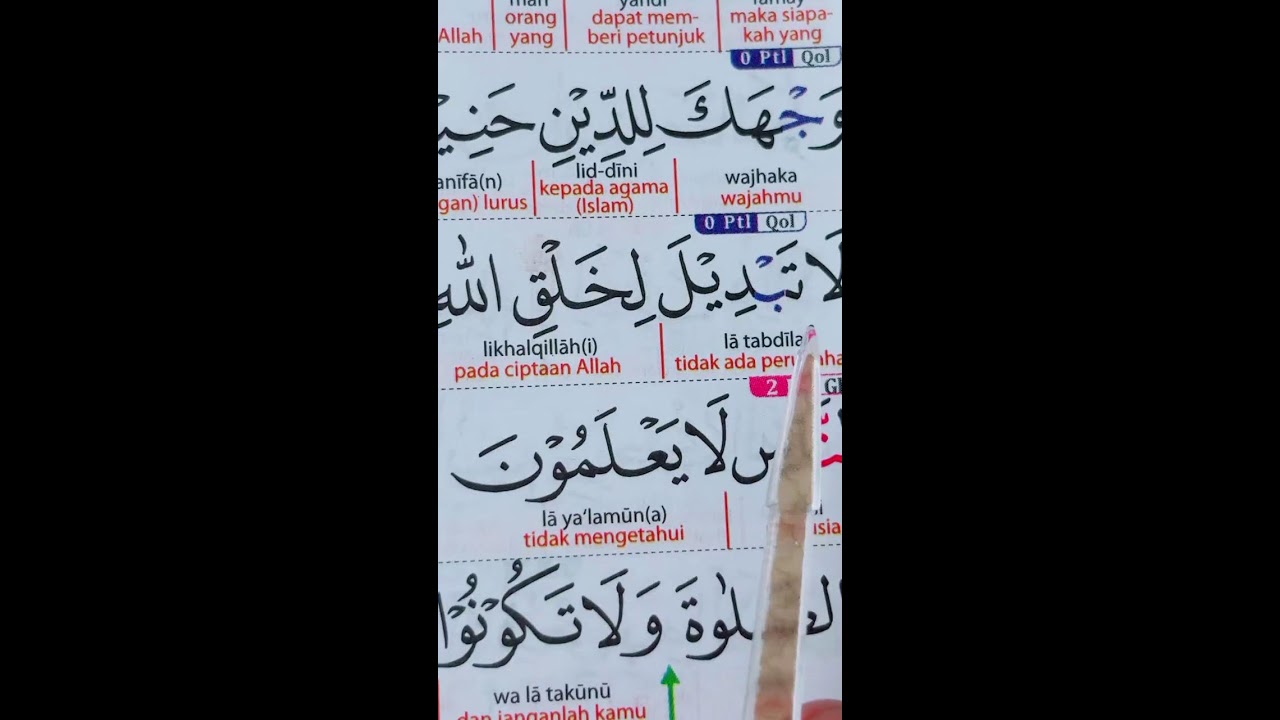 Allah orang yang dapat mem-beri petunjuk maka siapa-kah yang
0 Ptl Qol
وَجْهَكَ لِلدِّيْنِ
anīfā(n) lid-dīni wajhaka
gan) lurus kepada agama (Islam) wajahmu
0 Ptl Qol
لَا تَبْدِيْلَ لِخَلْقِ اللّٰهِ
likhalqillāh(i) lā tabdīla
pada ciptaan Allah tidak ada
2
لَا يَعْلَمُوْنَ
lā ya‘lamūn(a)
tidak mengetahui
وَلَا تَكُوْنُوْا
wa lā takūnū
dan janganlah kamu